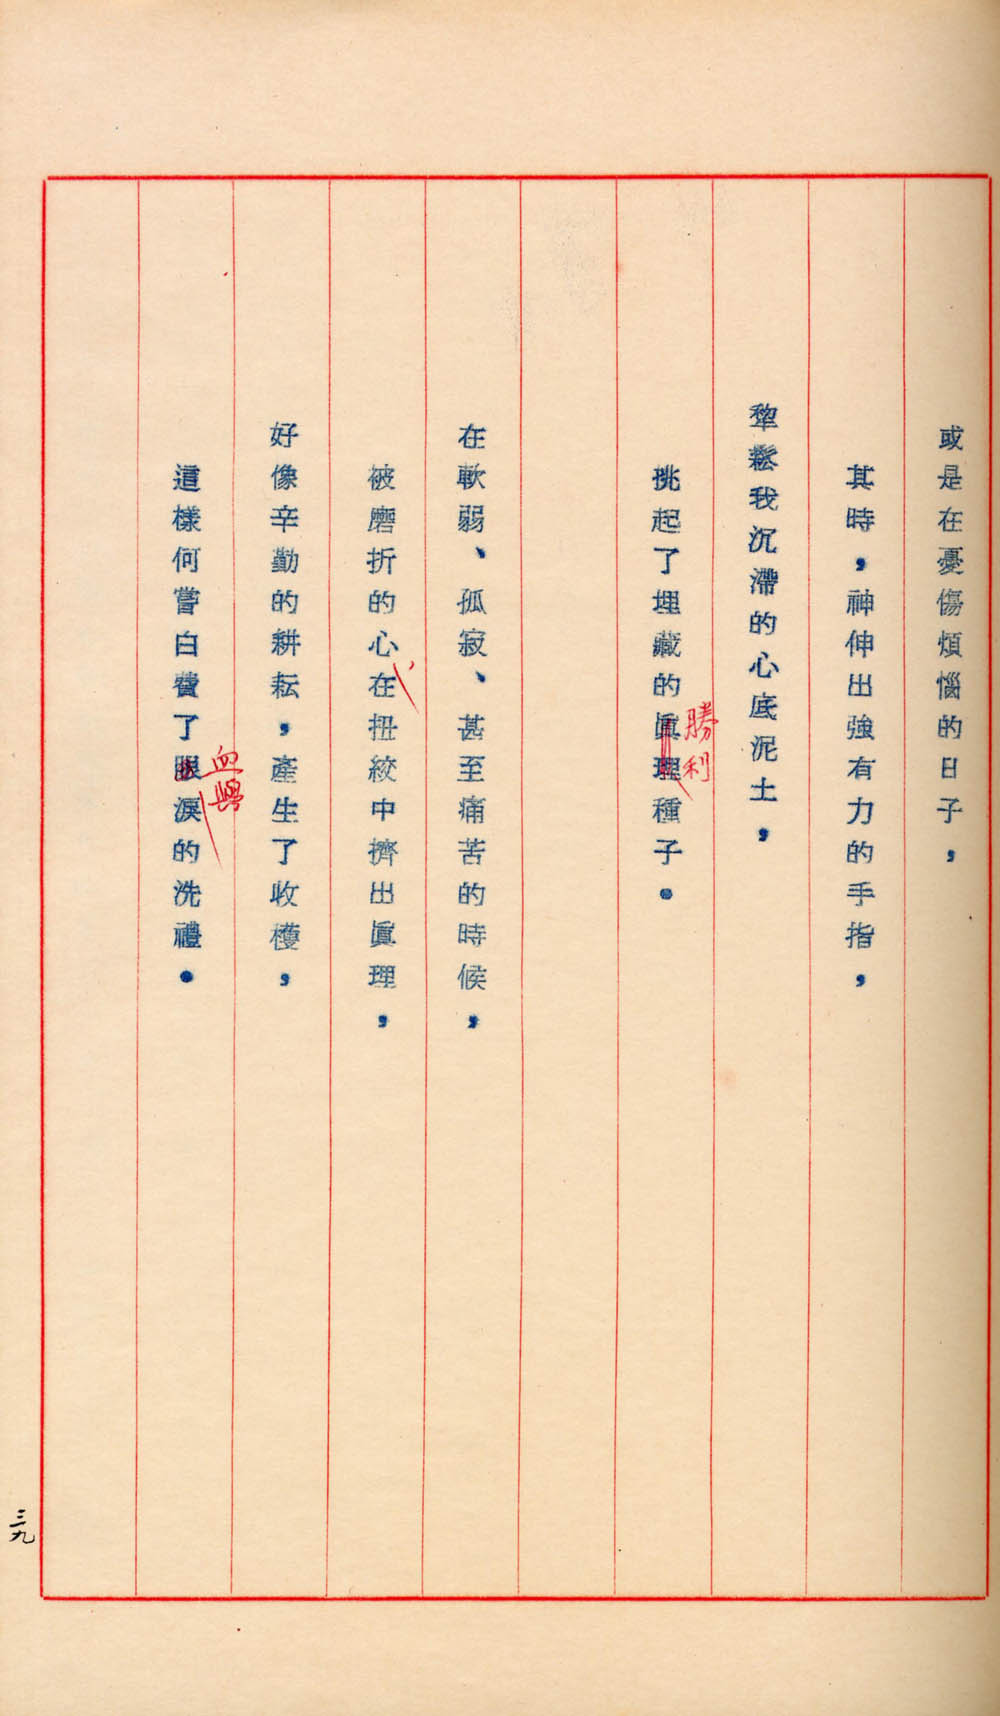 或是在憂傷煩惱的日子，
其時，神伸出強有力的手指，
犂鬆我沉滯的心底泥土，
勝利
挑起了埋藏的眞理種子。
在軟弱、孤寂、甚至痛苦的時候，
、
被磨折的心在扭絞中擠出眞理，
好像辛勤的耕耘，產生了收穫，
血與
這樣何嘗白費了眼淚的洗禮。
三九